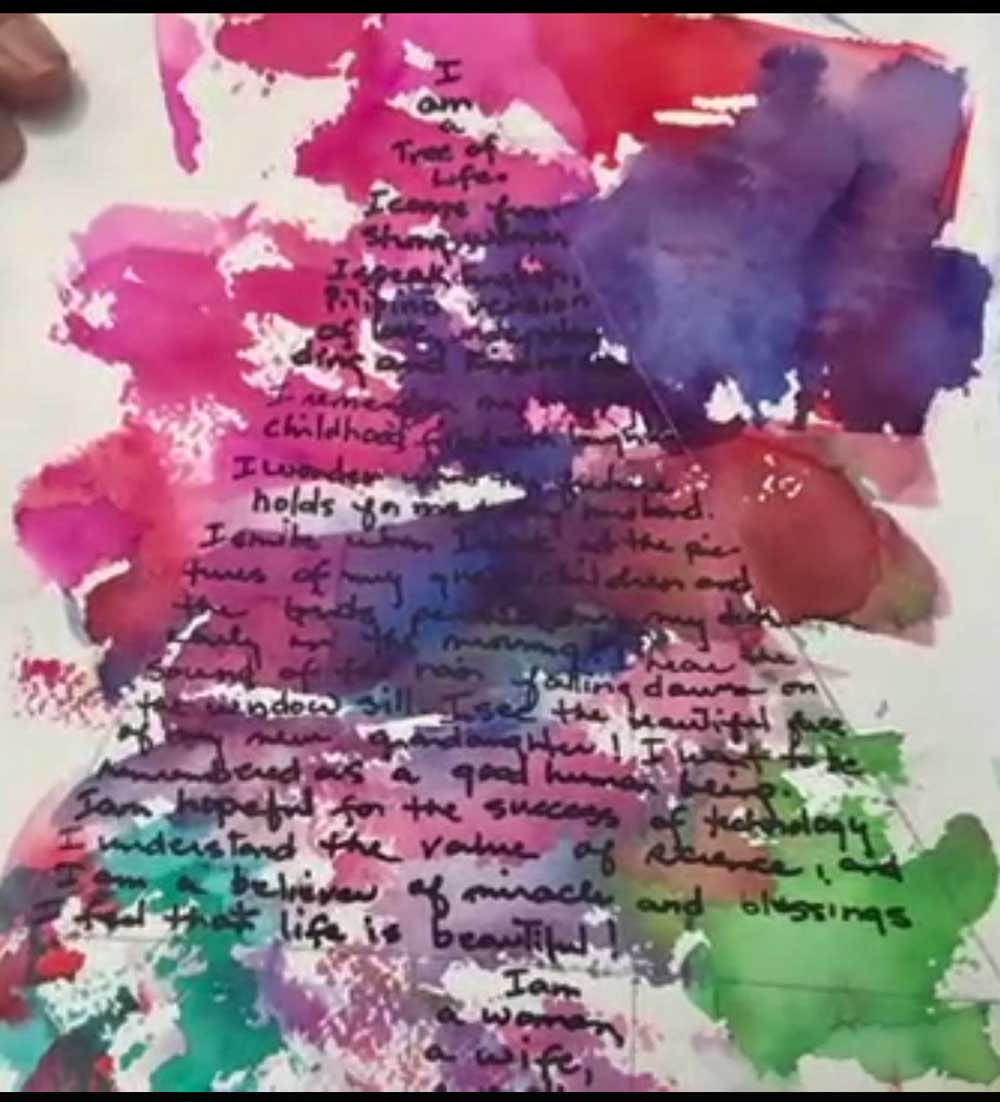 I
am
a
Tree of
Life.
I come from
strong woman
I speak English,
Pilipino version
of love, understan
ding and kindness
I remember my
childhood filled with laughter
I wonder what the future
holds for me and my husband.
I smile when I look at the pic-
tures of my grandchildren and
the birds my
early in the morning. I hear the
sound of the rain falling down on
the window sill. I see the beautiful face
of my new grandaughter! I want to be
remembered as a good human being.
I am hopeful for the success of technology
I understand the value of science, and
I am a believer of miracle and blessings
I feel that life is beautiful!
I am
a woman
a wife,